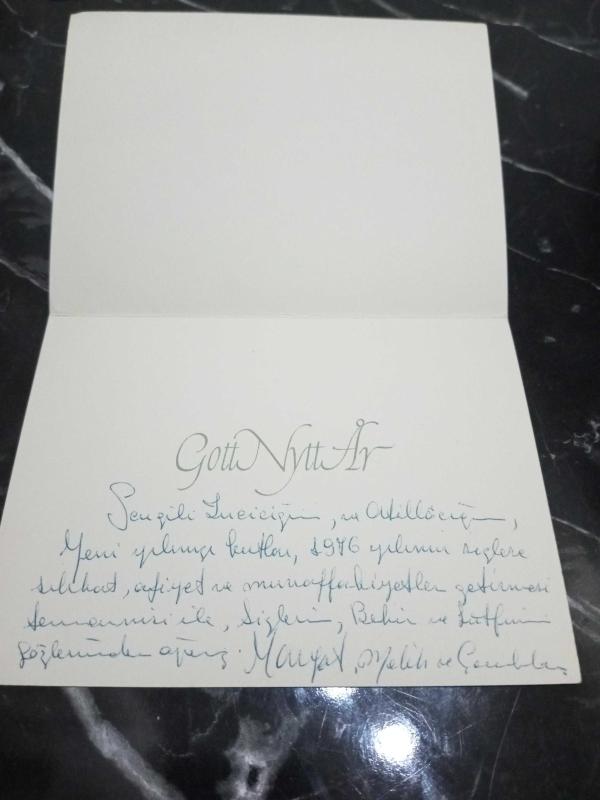 Gott Nytt År
Sevgili İnciciğim, ve Atillâcığım,
Yeni yılınızı kutlar, 1976 yılının sizlere
sıhhat, afiyet ve muvaffakiyetler getirmesi
temennisi ile, Sizlerin, Bekir ve Lütfinin
gözlerinden öperiz. Melih ve Çocuklar